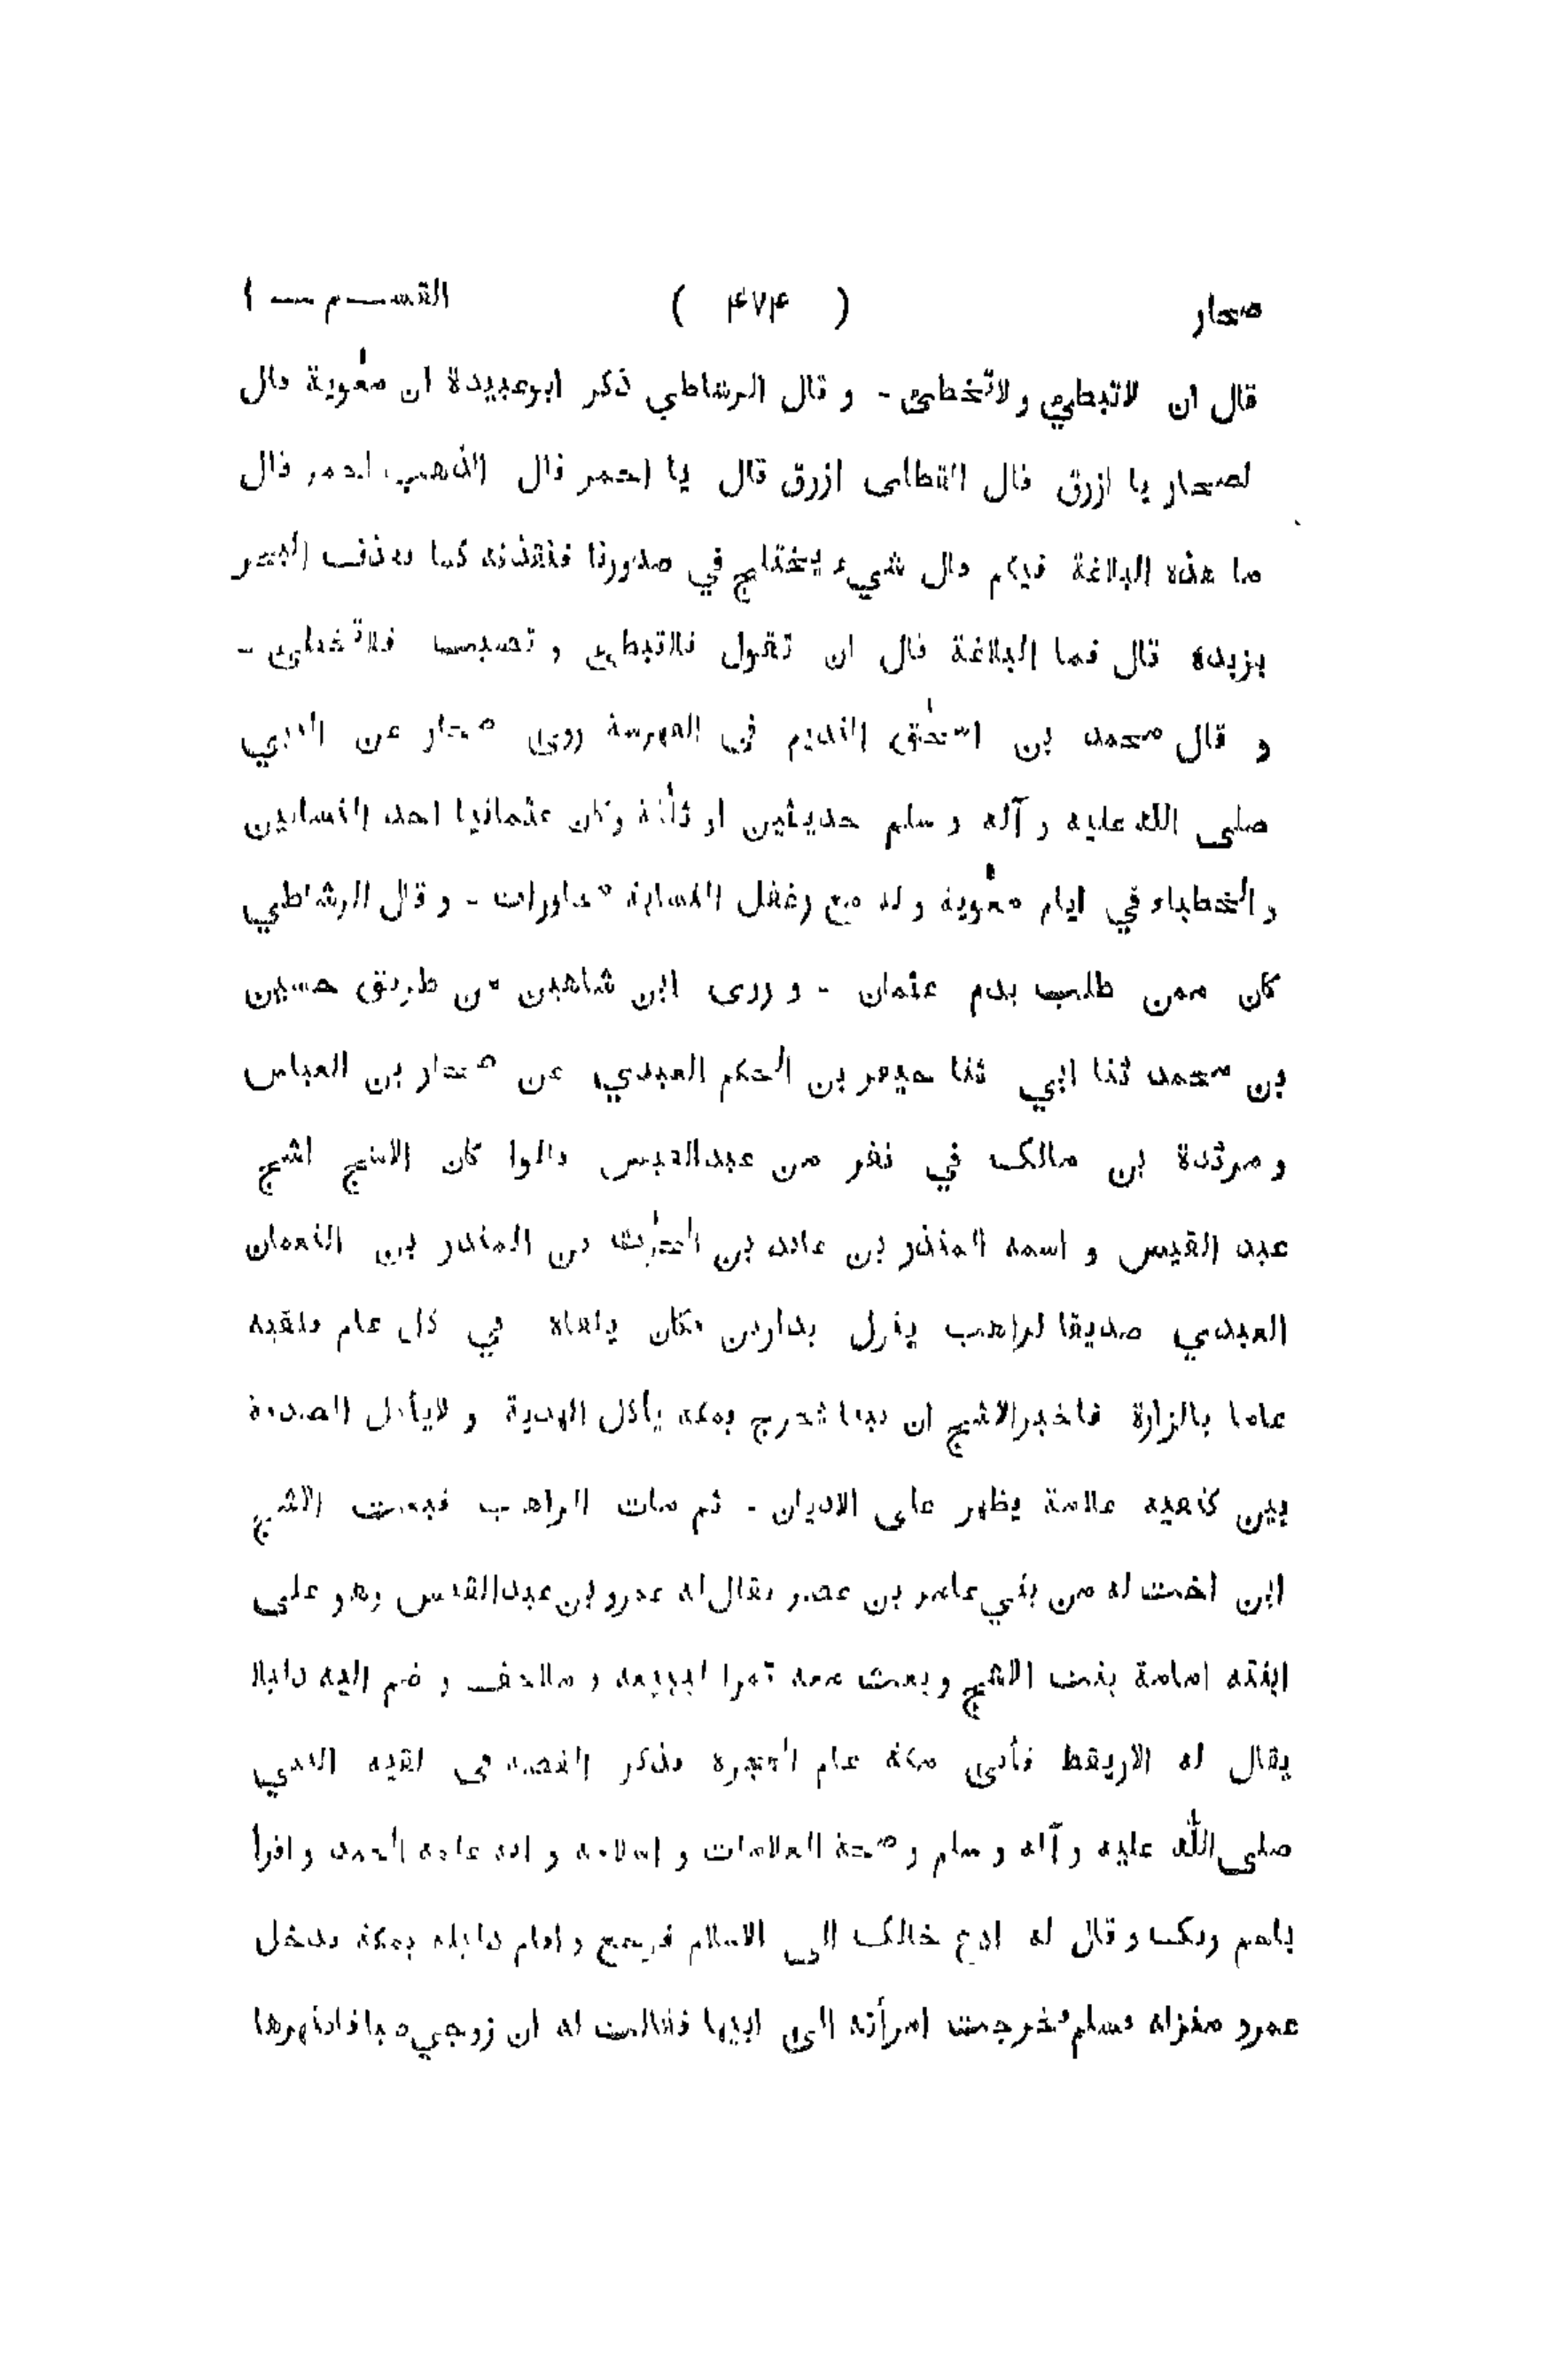 صحار ( ۴۷۴ ) القســـم ــ ١
قال ان لاتبطئ ولاتخطئ - و قال الرشاطي ذكر ابوعبيدة ان معٰوية قال
لصحار يا ازرق قال القطامى ازرق قال يا احمر قال الذهب احمر قال
ما هذه البلاغة فيكم قال شيء يختلج في صدورنا فنقذفه كما يقذف البحر
بزبده قال فما البلاغة قال ان تقول فلاتبطئ و تصيب فلاتخطئ -
و قال محمد بن اسحٰق النديم فى الفهرسة روى صحار عن النبي
صلى الله عليه و آله و سلم حديثين او ثلٰثة وكان عثمانيا احد النسابين
والخطباء في ايام معٰوية و له مع دغفل النسابة محاورات - و قال الرشاطي
كان ممن طلب بدم عثمان - و روى ابن شاهين من طريق حسين
بن محمد ثنا ابي ثنا جيفر بن الحكم العبدي عن صحار بن العباس
و مرثدة بن مالك في نفر من عبدالقيس قالوا كان الاشج اشج
عبد القيس و اسمه المنذر بن عائذ بن الحٰرث بن المنذر بن النعمان
العبدي صديقا لراهب ينزل بدارين فكان يلقاه في كل عام فلقيه
عاما بالزارة فاخبرالاشج ان نبيا يخرج بمكة يأكل الهدية و لايأكل الصدقة
بين كتفيه علامة يظهر على الاديان - ثم مات الراهب فبعث الاشج
ابن اخت له من بني عامر بن عصر يقال له عمرو بن عبدالقيس وهو على
ابنته امامة بنت الاشج و بعث معه تمرا ليبيعه و ملاحف و ضم اليه دليلا
يقال له الاريقط فأتى مكة عام الهجرة فذكر القصة فى لقيه النبي
صلى الله عليه و آله و سلم و صحة العلامات و اسلامه و انه علمه الحمد و اقرأ
باسم ربك و قال له ادع خالك الى الاسلام فرجع و اقام دليله بمكة فدخل
عمرو منزله فسلم فخرجت امرأته الى ابيها فقالت له ان زوجي صبا فانتهرها